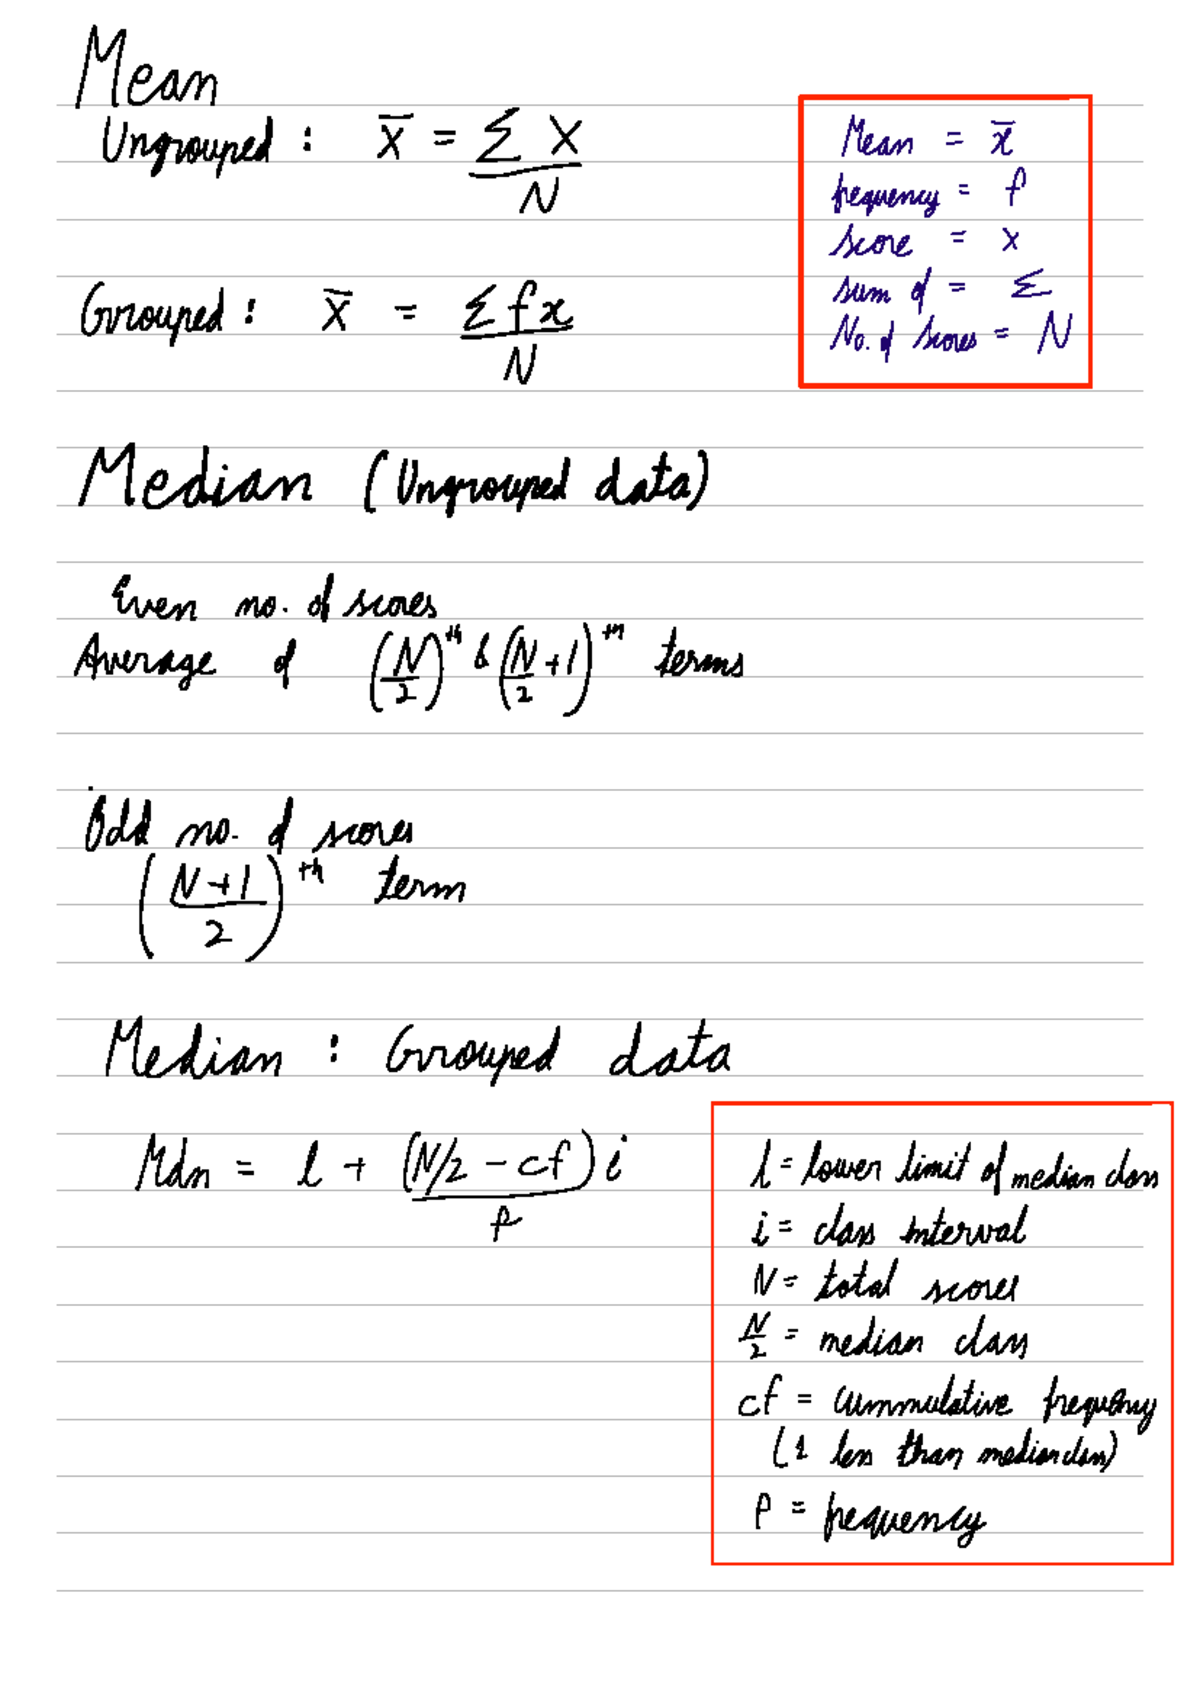 Mean
Ungrouped : x̄ = Σ X / N
Grouped : x̄ = Σ f x / N
Mean = x̄
frequency = f
score = x
sum of = Σ
No. of scores = N
Median (Ungrouped data)
Even no. of scores
Average of (N/2)th & (N/2 + 1)th terms
Odd no. of scores
(N + 1 / 2)th term
Median : Grouped data
Mdn = l + (N/2 - cf) i / f
l = lower limit of median class
i = class interval
N = total scores
N/2 = median class
cf = cummulative frequency
(1 less than median class)
f = frequency